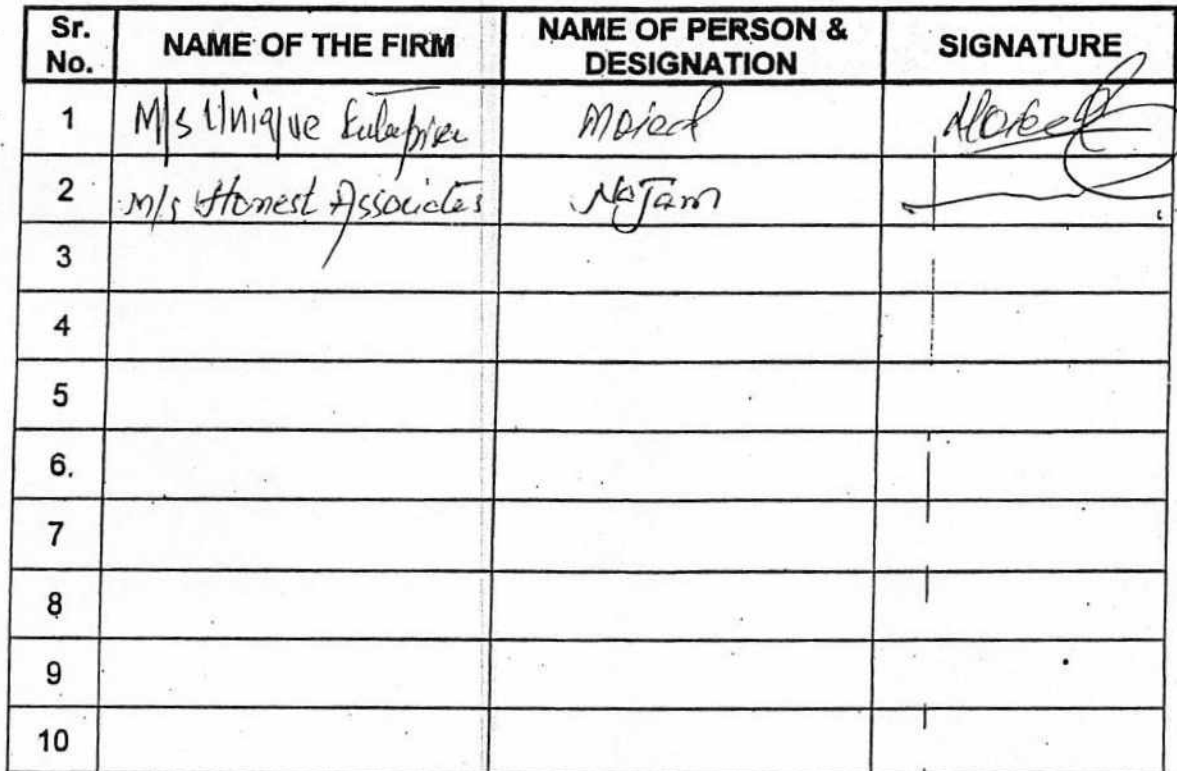 Sr. No. NAME OF THE FIRM NAME OF PERSON & DESIGNATION SIGNATURE
1 M/s Unique Enterprises
2 M/s Honest Associates Najam
3
4
5
6.
7
8
9
10